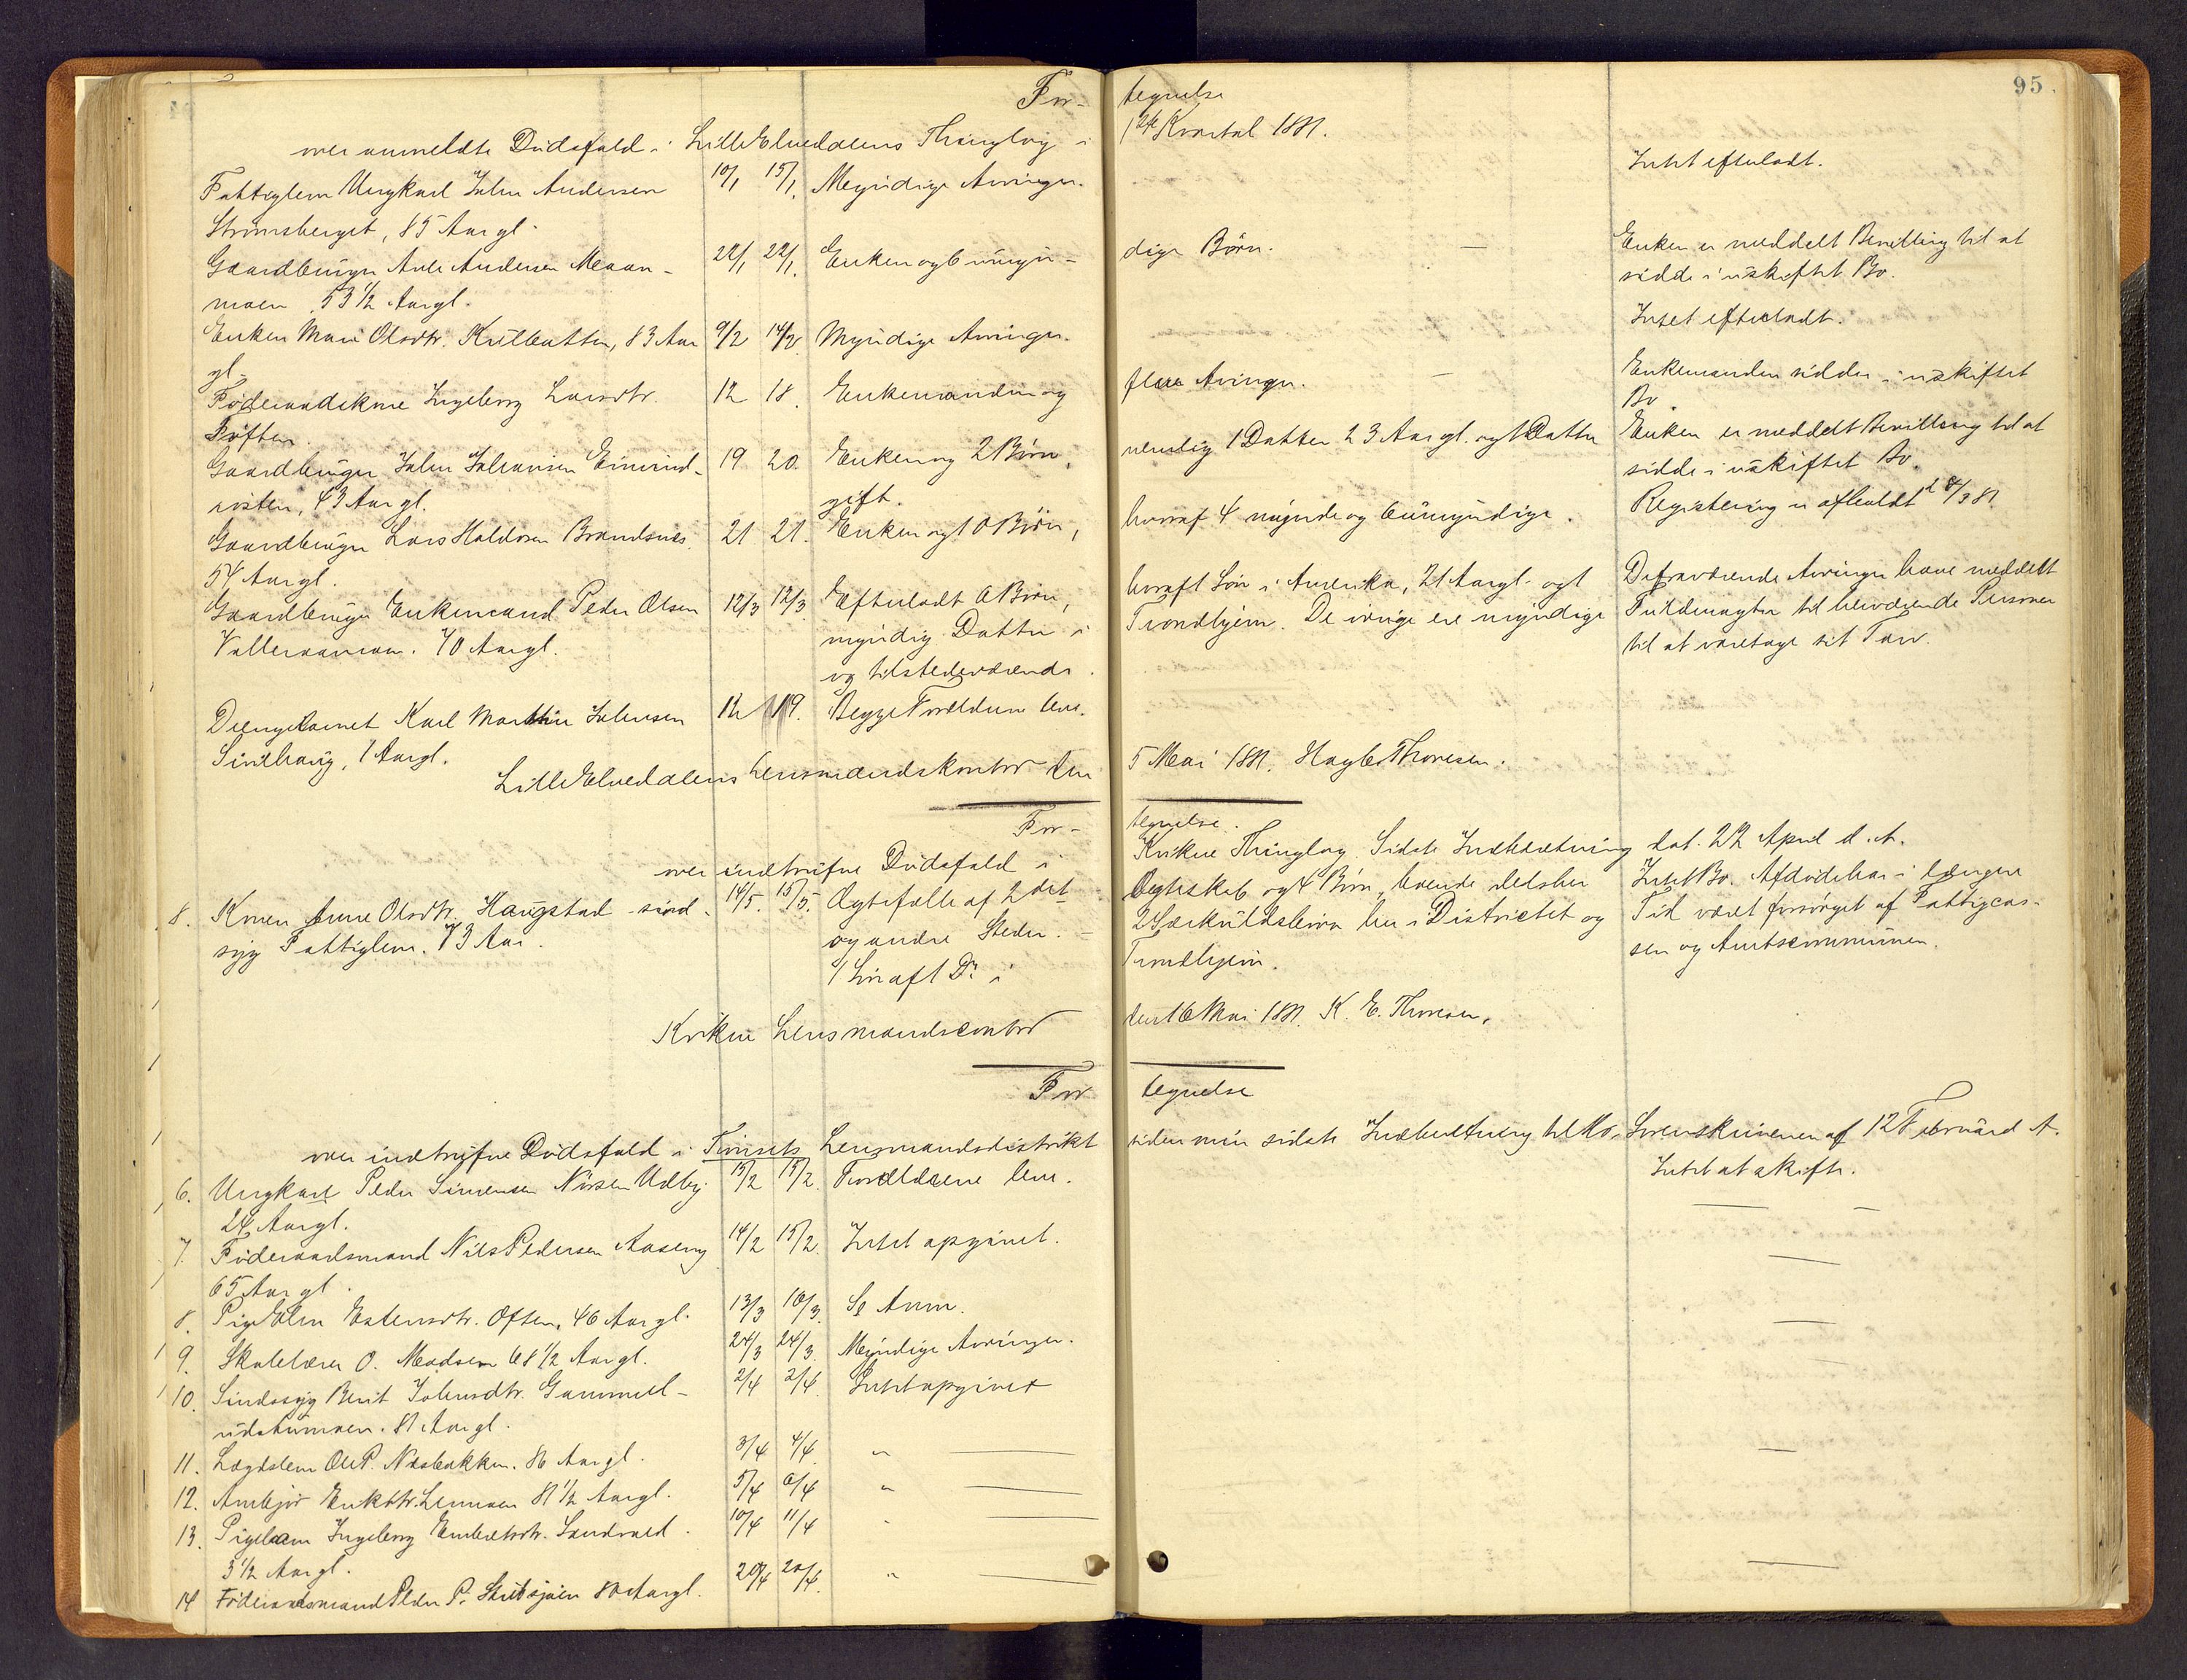 95.
For-
tegnelse
over anmeldte Dødsfald i Lille Elvedalens Thinglag i
1ste Kvartal 1881.
Fattiglem Ungkarl John Andersen 10/1 15/1. Myndige Arvinger.
Intet efterladt.
Strømsberget, 85 Aar gl.
Gaardbruger Andersen 22/1 22/1. Enken og 6 umyn-
dige Børn. — Enken er meddelt Bevilling til at
moen 53 1/2 Aar gl.
sidde i uskiftet Bo.
Enken Mari Olsdtr. 83 Aar 9/2 14/2. Myndige Arvinger.
Intet efterladt.
gl.
Føderaadskone Ingeborg Larsdtr. 12 18. Enkemanden og
flere Arvinger. — Enkemanden sidder i uskiftet
Bo.
Gaardbruger John Johansen 19 20. Enken og 2 Børn,
nemlig 1 Datter 23 Aar gl. og 1 Datter Enken er meddelt Bevilling til at
43 Aar gl. gift.
sidde i uskiftet Bo.
Gaardbruger Lars Haldorsen Brandsnes 21 21. Enken og 10 Børn,
hvoraf 4 myndige og 6 umyndige. Registrering er afholdt d 8/3 81.
54 Aar gl.
Gaardbruger Enkemand Peder Olsen 12/3 12/3. Efterladt 6 Børn,
hvoraf 1 Søn i Amerika, 21 Aar gl. og 1 De fraværende Arvinger have meddelt
70 Aar gl. myndig Datter i
Trondhjem. De øvrige ere myndige Fuldmagter til herværende Personer
og tilstedeværende.
til at varetage sit Tarv.
Drengebarnet Karl Johnsen 12 19. Begge Forældrene leve.
1 Aar gl.
Lille Elvedalens Lensmandskontor den
5 Mai 1881. Thoresen.
For-
tegnelse
over indtrufne Dødsfald i
Kvikne Thinglag. Sidste Indberetning dat. 22 April d. A.
8. Konen Anne Olsdtr. Haugstad sind- 14/5. 15/5. Ægtefælle af 2det
Ægteskab og 4 Børn, boende dels her Intet Bo. Afdøde har i længere
syg Fattiglem. 73 Aar. og andre Steder. -
2 Særkuldsbørn her i Districtet og Tid været forsørget af Fattigcas-
1 Søn af 1 Do i
Trondhjem. sen og Amtscommunen.
Kvikne Lensmandscontor
den 16 Mai 1881. K. E. Thoresen.
For
tegnelse
over indtrufne Dødsfald i Tønsets Lensmandsdistrikt
siden min sidste Indberetning til Hr. Sorenskriveren af 12 Februar d. A.
6. Ungkarl Peder Simensen Udby 15/2 15/2. Forældrene leve.
Intet at skifte.
24 Aar gl.
7. Føderaadsmand Nils Pedersen Aaseng 14/2 15/2. Intet opgivet.
— —
65 Aar gl.
8. Pige Elen Estensdtr. Often, 46 Aar gl. 13/3 16/3.
—
9. Skolelærer O. Madsen 68 1/2 Aar gl. 24/3 24/3. Myndige Arvinger.
—
10. Sindssyg Berit Johnsdtr. Gammel- 2/4 2/4. Intet opgivet
81 Aar gl.
11. Lægdslem Ole P. Næsbakken. 86 Aar gl. 3/4 4/4. " —
12. 81 1/2 Aar gl. 5/4 6/4 " —
13. Pigebarn Ingeborg Embretsdtr. 10/4 11/4 " —
3 1/2 Aar gl.
14 Føderaadsmand Peder P. 80 Aar gl. 20/4 20/4. " —